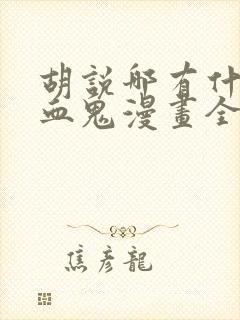 胡說那有什
血鬼漫畫全
焦彥龍